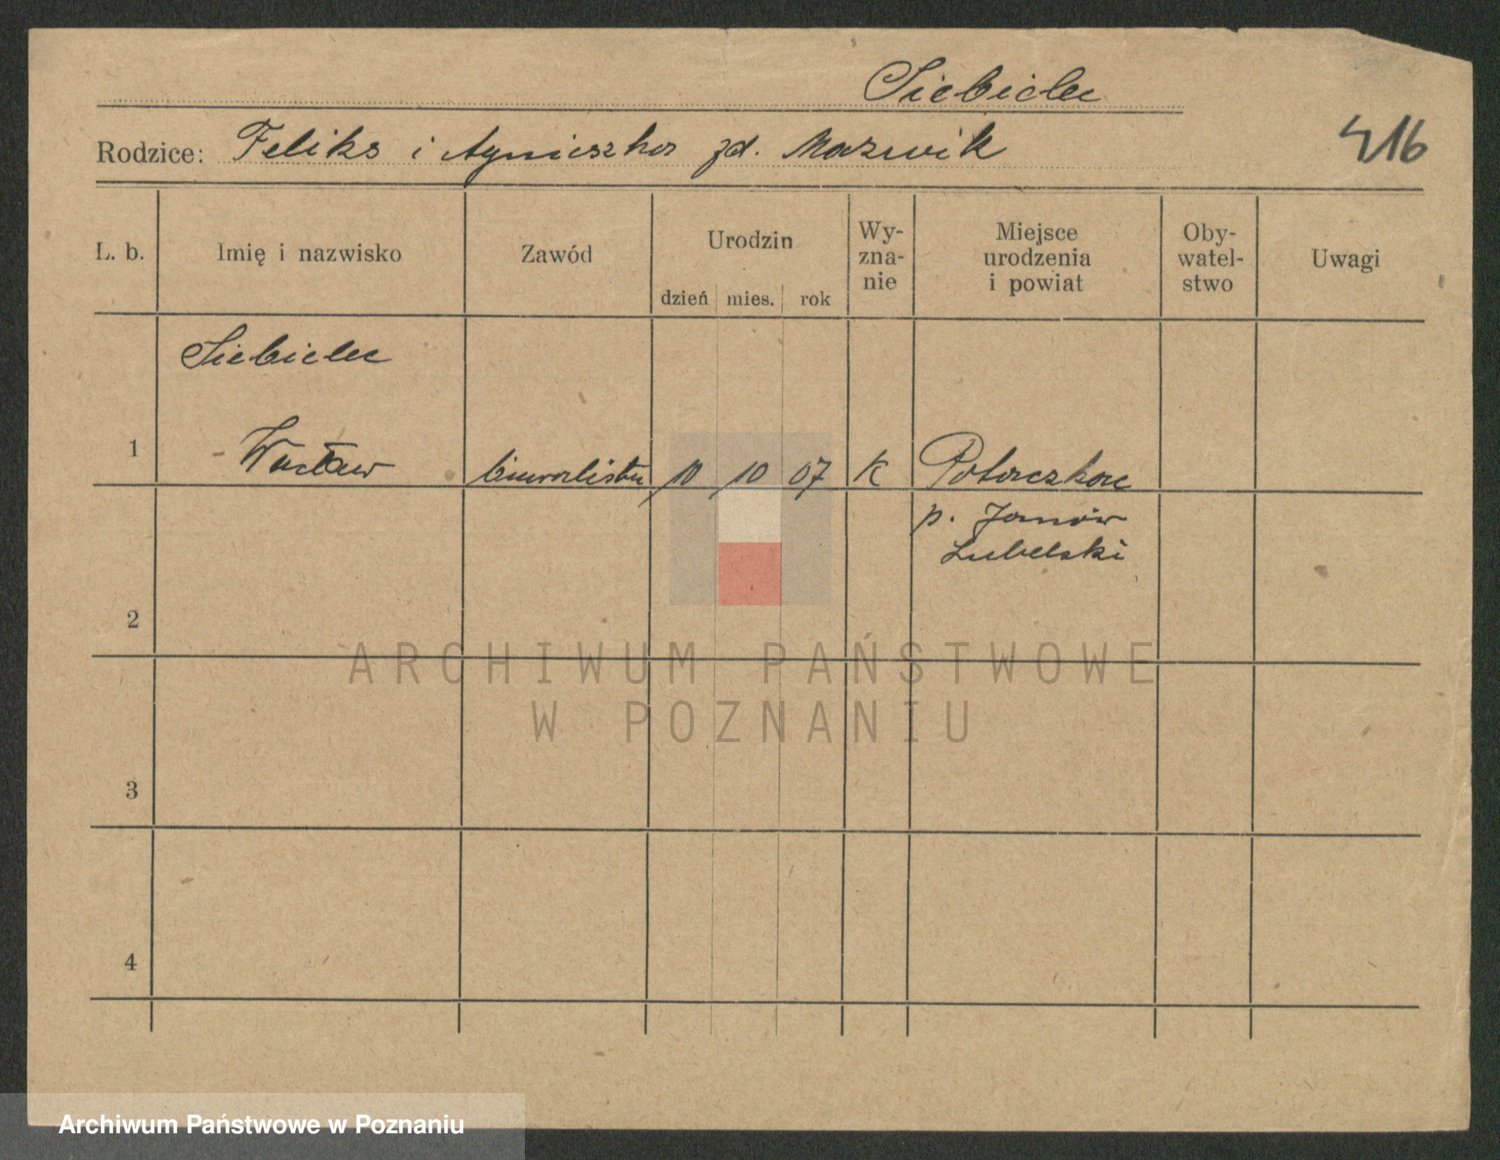 Siebielec
416
Rodzice: Feliks i Agnieszka zd. Mazurik
L. b. Imię i nazwisko Zawód Urodzin dzień mies. rok Wy-zna-nie Miejsce urodzenia i powiat Oby-watel-stwo Uwagi
Siebielec
1 Wacław biuralista 10 10 07 K Potoczkoe
p. Janów
Lubelski
2
ARCHIWUM PAŃSTWOWE
W POZNANIU
3
4
Archiwum Państwowe w Poznaniu